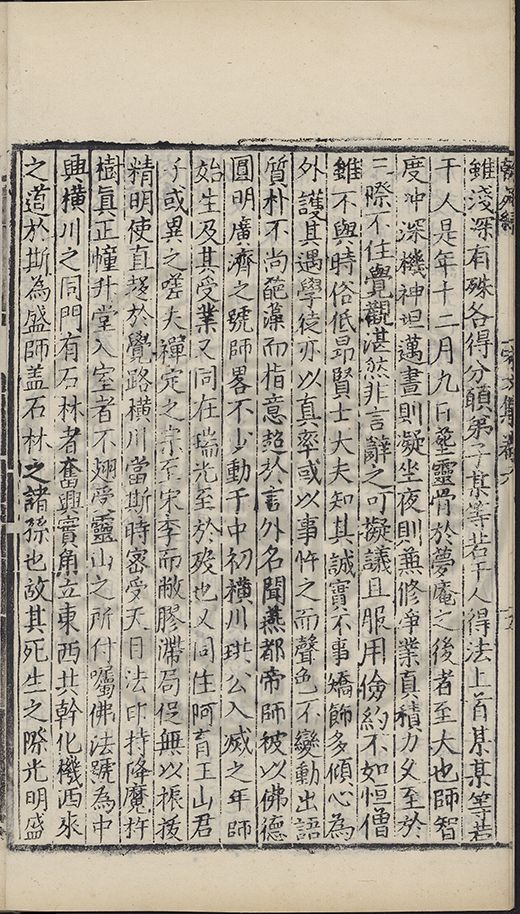 雖淺深有殊各得分願弟子某等若干人得法上首某某等若
干人是年十二月九日塟靈骨於夢庵之後者至大也師智
度冲深機神坦邁晝則凝坐夜則兼修爭業真積力久至於
二際不住覺觀湛然非言辭之可擬議且服用儉約不如恒僧
雖不與時俗低昂賢士大夫知其誠實不事矯飾多傾心為
外護其遇學徒亦以真率或以事忤之而聲色不變動出語
質朴不尚葩藻而指意超於言外名聞燕都帝師被以佛德
圓明廣濟之號師畧不少動于中初橫川珙公入滅之年師
始生及其受業又同在瑞光至於歿也又同住阿育王山君
子或異之嗟夫禪定之宗至宋季而敝膠滯局促無以振拔
精明使直趍於覺路橫川當斯時密受天目法印持降魔杵
樹真正幢升堂入室者不翅受靈山之所付囑佛法號為中
興橫川之同門有石林者奮興實角立東西共幹化機西來
之道於斯為盛師盖石林之諸孫也故其死生之際光明盛